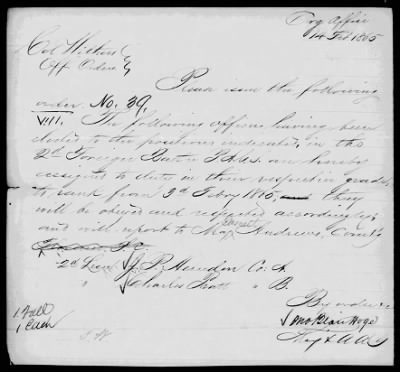 Org Office
14 Feb 1865
Col Withers
Off. Orders
Please issue the following
order No. 39.
VIII. The following officers having been
elected to the positions indicated, in the
2d Foreign Batt'n P.A.C.S. are hereby
assigned to duty in their respective grades,
to rank from 3d Feby 1865, They
will be obeyed and respected accordingly;
and will report to Maj Garnett Andrews, Com'd'g
2d Lieut J. P. Herndon Co. A.
" Charles Pratt " B.
By order &c
Jno Blair Hoge
Maj & A A G
1 Vall
1 Each